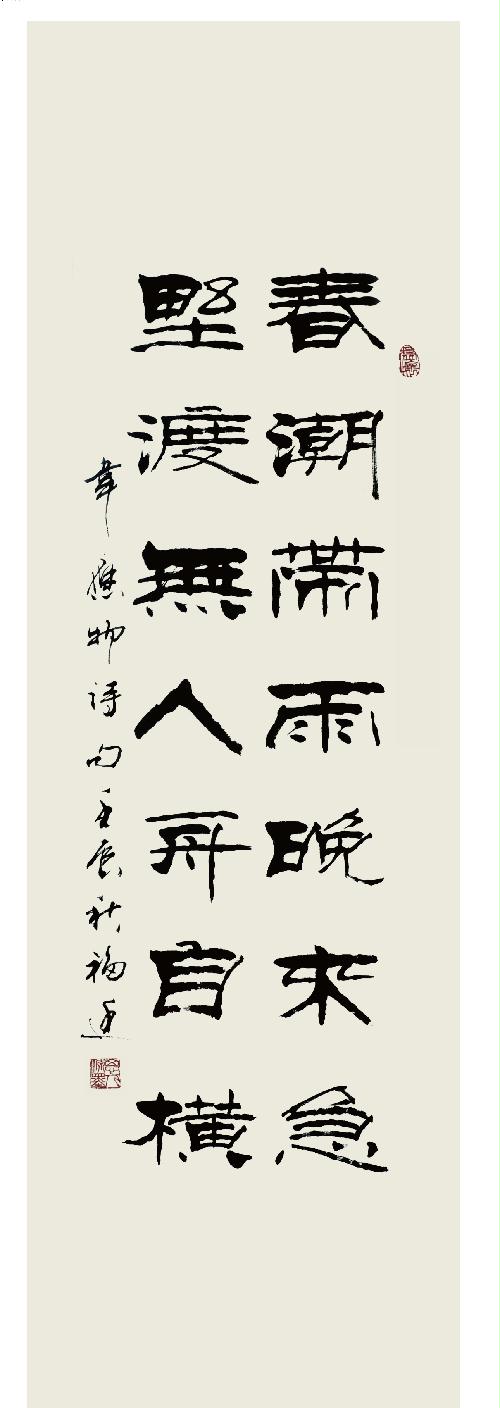 春潮帶雨晚來急
野渡無人舟自橫
韋應物詩句壬辰秋福廷